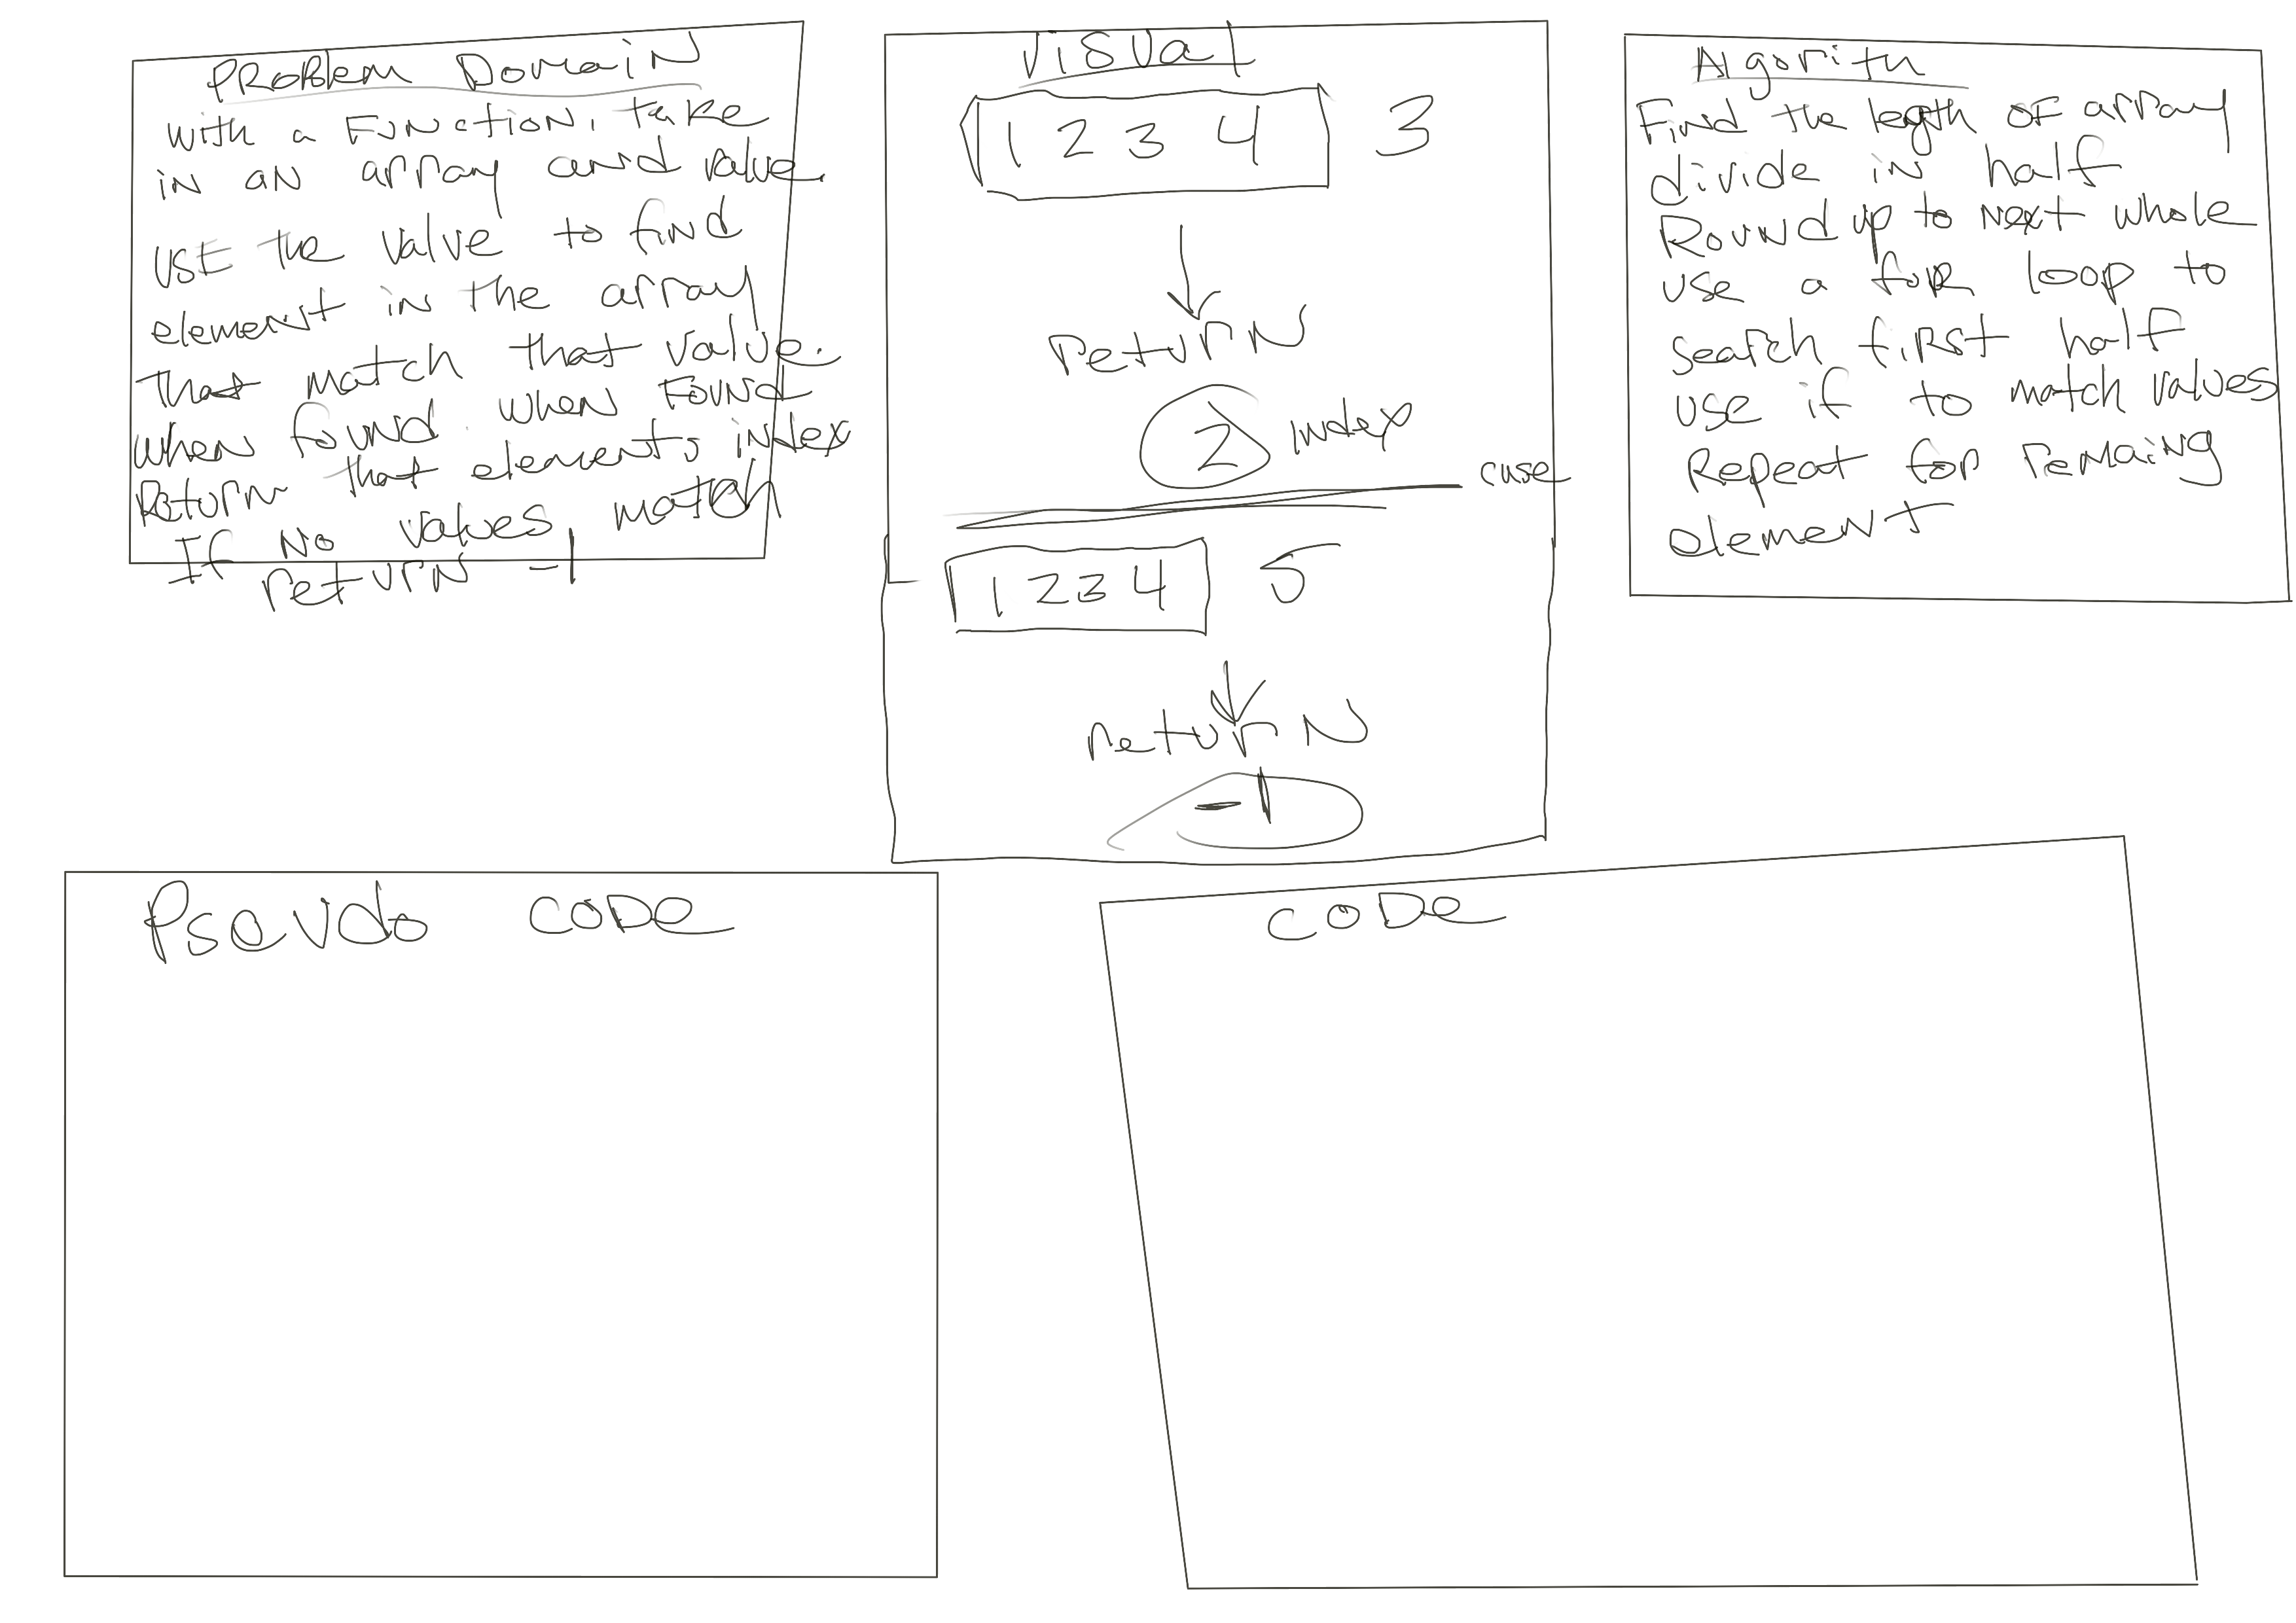 PRoBlem DomaiN
with a FUNctioN, take
iN aN array and value.
USE the value to find
element in the array
that match that value.
when found. when FouNd
Return that elements index
If No values, match
returN -1
VISUal
1 2 3 4 3
returN
2 index
case
1 2 3 4 5
returN
-1
Algorith
Find the legth of array
divide in half
Round up to Next whole
use a foR loop to
search fiRst half
use if to match values
Repeat for remaing
element
Pseudo CODe
CODe